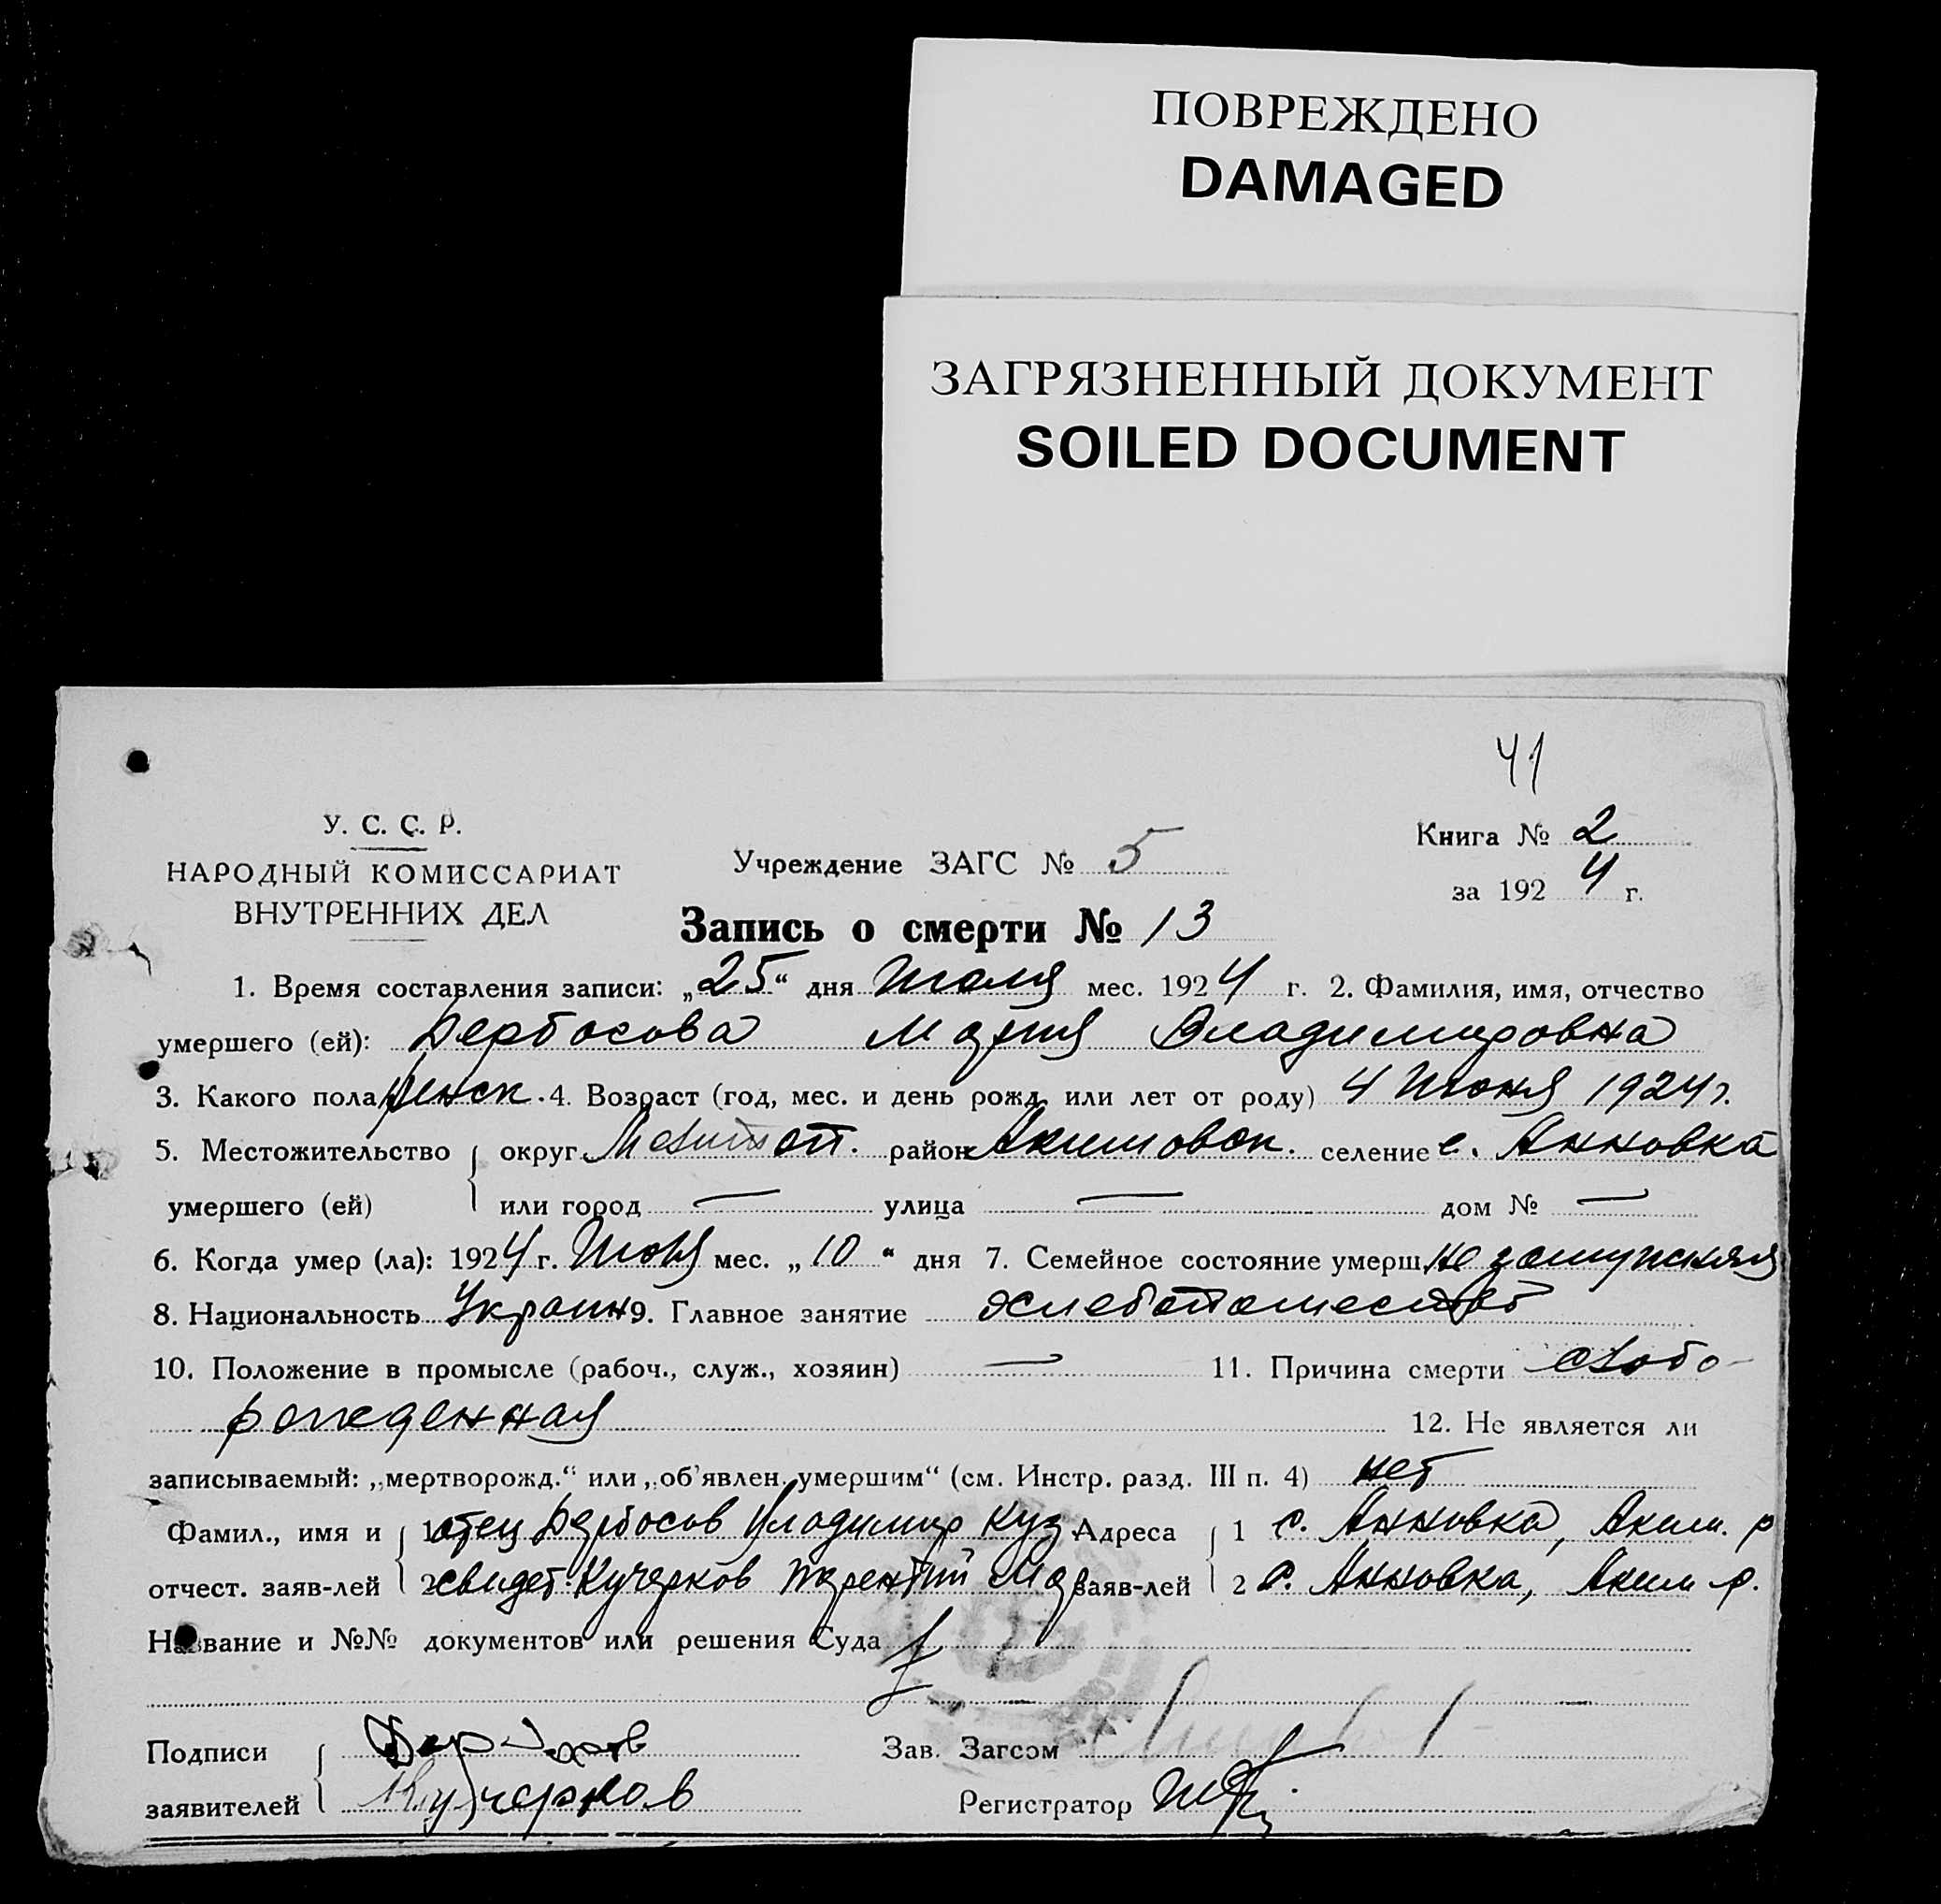 ПОВРЕЖДЕНО
DAMAGED
ЗАГРЯЗНЕННЫЙ ДОКУМЕНТ
SOILED DOCUMENT
41
У. С. С. Р.
НАРОДНЫЙ КОМИССАРИАТ
ВНУТРЕННИХ ДЕЛ
Учреждение ЗАГС № 5
Книга № 2
за 1924 г.
Запись о смерти № 13
1. Время составления записи: „25“ дня Июля мес. 1924 г. 2. Фамилия, имя, отчество
умершего (ей): Дербасова Мария Владимировна
3. Какого пола женск. 4. Возраст (год, мес. и день рожд. или лет от роду) 4 Июня 1924 г.
5. Местожительство округ Мелитоп. район Акимовск. селение с. Анновка
умершего (ей) или город — улица — дом № —
6. Когда умер (ла): 1924 г. мес. „10“ дня 7. Семейное состояние умерш. не замужняя
8. Национальность Украин 9. Главное занятие хлебопашество
10. Положение в промысле (рабоч., служ., хозяин) — 11. Причина смерти слабо-
рожденная 12. Не является ли
записываемый: „мертворожд.“ или „об'явлен. умершим“ (см. Инстр. разд. III п. 4) нет
Фамил., имя и 1 отец Дербасов Владимир Куз Адреса 1 с. Анновка, Аким. р
отчест. заяв-лей 2 свидет. Кучерков Терентий заяв-лей 2 с. Анновка, Аким р.
Название и №№ документов или решения Суда
Подписи Зав. Загсом
заявителей Кучерков Регистратор